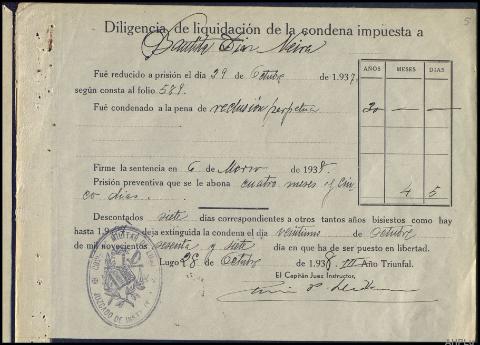 5
Diligencia de liquidación de la condena impuesta a
Bautista Dior Neira
Fué reducido a prisión el día 29 de Octubre de 1.937.
según consta al folio 589.
AÑOS MESES DIAS
Fué condenado a la pena de reclusión perpetua
30 — —
Firme la sentencia en 6 de Marzo de 1938.
Prisión preventiva que se le abona cuatro meses y cin
co dias.
4 5
Descontados siete días correspondientes a otros tantos años bisiestos como hay
hasta 1.9 deja extinguida la condena el día veintiuno de Octubre
de mil novecientos sesenta y siete día en que ha de ser puesto en libertad.
Lugo 28 de Octubre de 1.938. III Año Triunfal.
El Capitán Juez Instructor,
MILITAR
JUZGADO DE INST